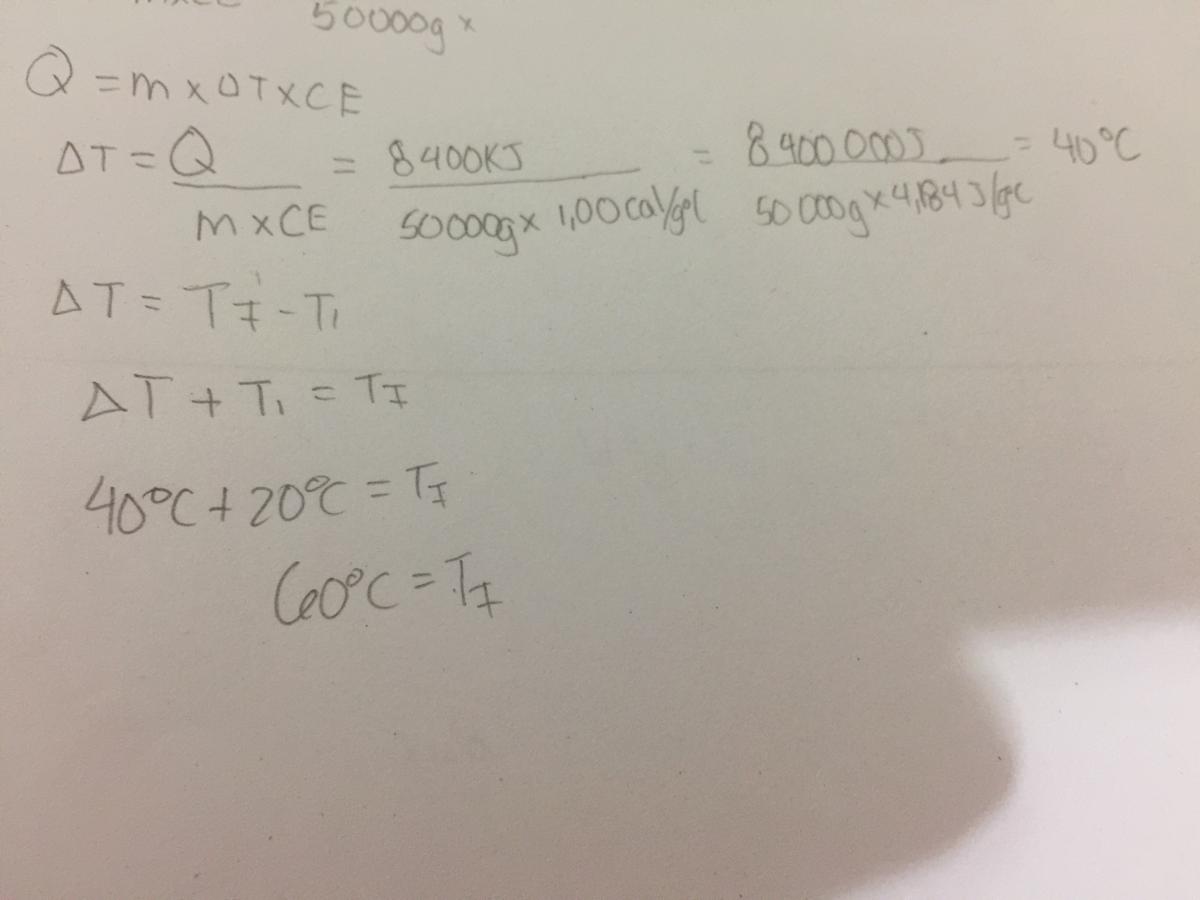 50000g x
Q = m x ΔT x CE
ΔT = Q / m x CE = 8400KJ / 50000g x 1,00 cal/g°C = 8400 000J / 50000g x 4,184 J/g°C = 40°C
ΔT = TF - Ti
ΔT + Ti = TF
40°C + 20°C = TF
60°C = TF